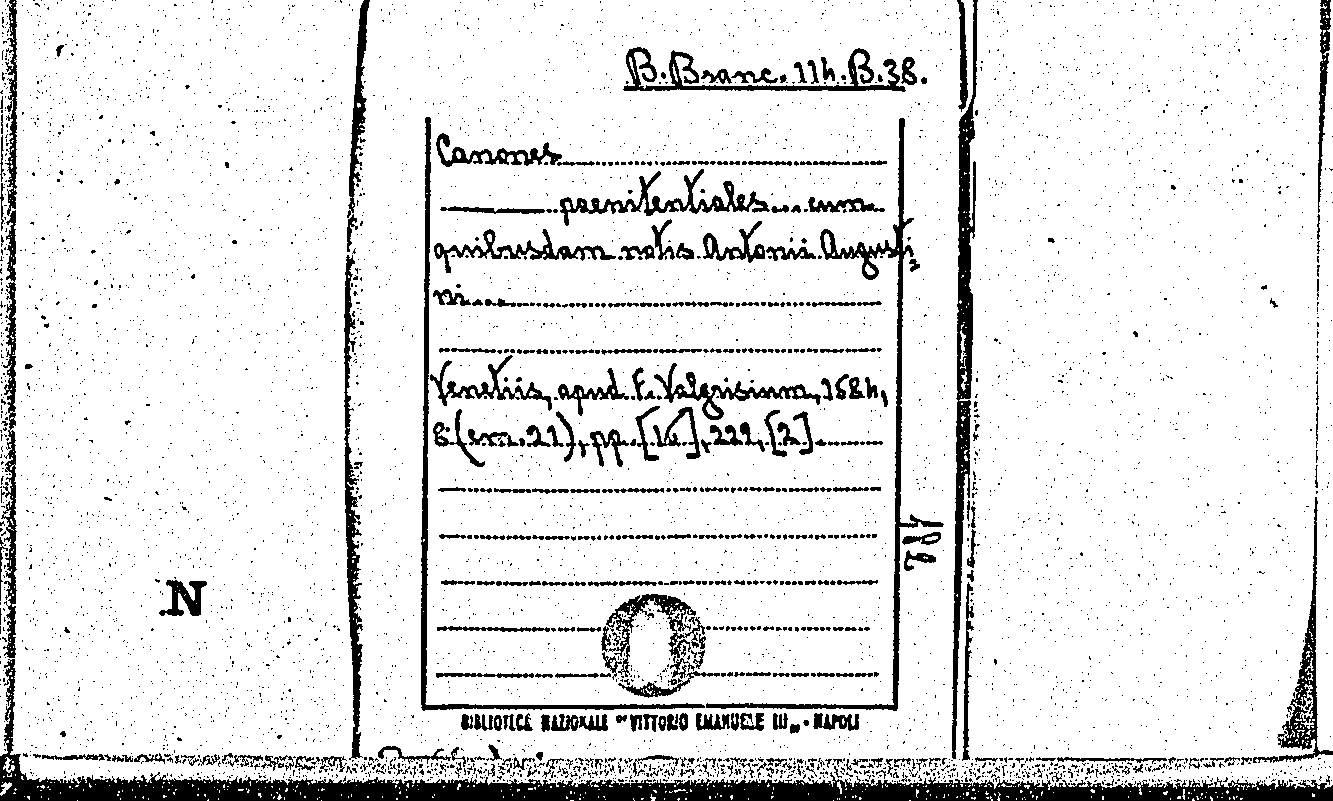 B. Branc. 114. B. 38.
Canones
paenitentiales... cum
quibusdam notis Antonii Augusti,
ni...
Venetiis, apud F. Valgrisium, 1584,
8 (cm. 21), pp. [14], 229, [2].
182
N
BIBLIOTECA NAZIONALE "VITTORIO EMANUELE III" - NAPOLI